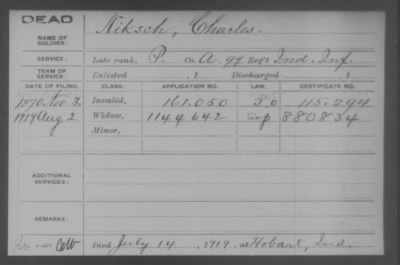 DEAD
NAME OF SOLDIER:
Niksch, Charles.
SERVICE:
Late rank, P. Co. A. 99 Reg't Ind. Inf.
TERM OF SERVICE:
Enlisted , 1 Discharged , 1
DATE OF FILING. CLASS. APPLICATION NO. CERTIFICATE NO.
1870 Nov. 3. Invalid, 161.050 115.294
1919 Aug 2 Widow, 1144642 880834
Minor,
ADDITIONAL SERVICES:
REMARKS:
Died July 14 1919, at Hobart, Ind.